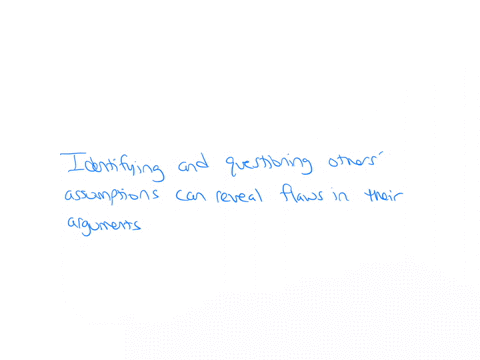 Identifying and questioning others'
assumptions can reveal flaws in their
arguments